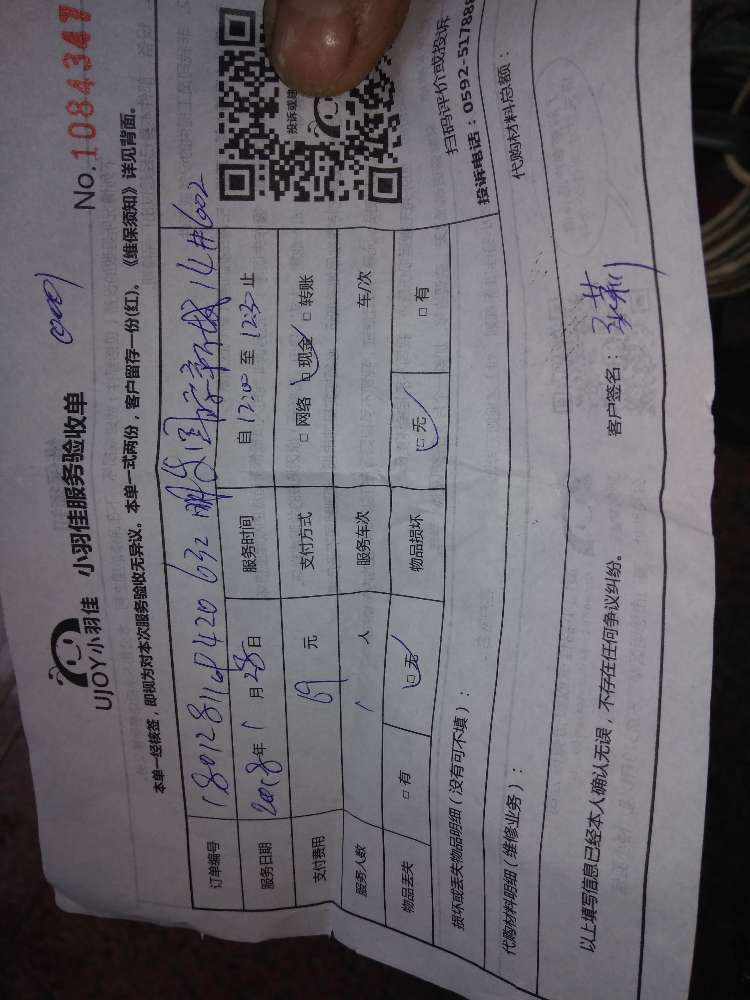 UJOY小羽佳 小羽佳服务验收单 No.1084347
本单一经核签，即视为对本次服务验收无异议。本单一式两份，客户留存一份(红)。《维保须知》详见背面。
订单编号
服务日期 2018年1月28日 服务时间 自12:00至12:30止
支付费用 69元 支付方式 □网络 □现金 □转账
服务人数 1人 服务车次 车/次
物品丢失 □有 □无 物品损坏 □无 □有
扫码评价或投诉
投诉电话：0592-517888
损坏或丢失物品明细（没有可不填）：
代购材料明细（维修业务）： 代购材料总额：
以上填写信息已经本人确认无误，不存在任何争议纠纷。 客户签名：